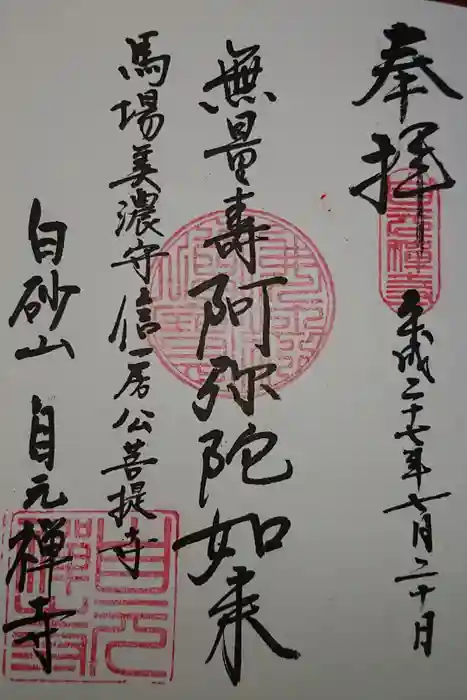 奉拝
平成二十七年七月二十日
無量寿阿弥陀如来
馬場美濃守信房公菩提寺
白砂山 自元禅寺